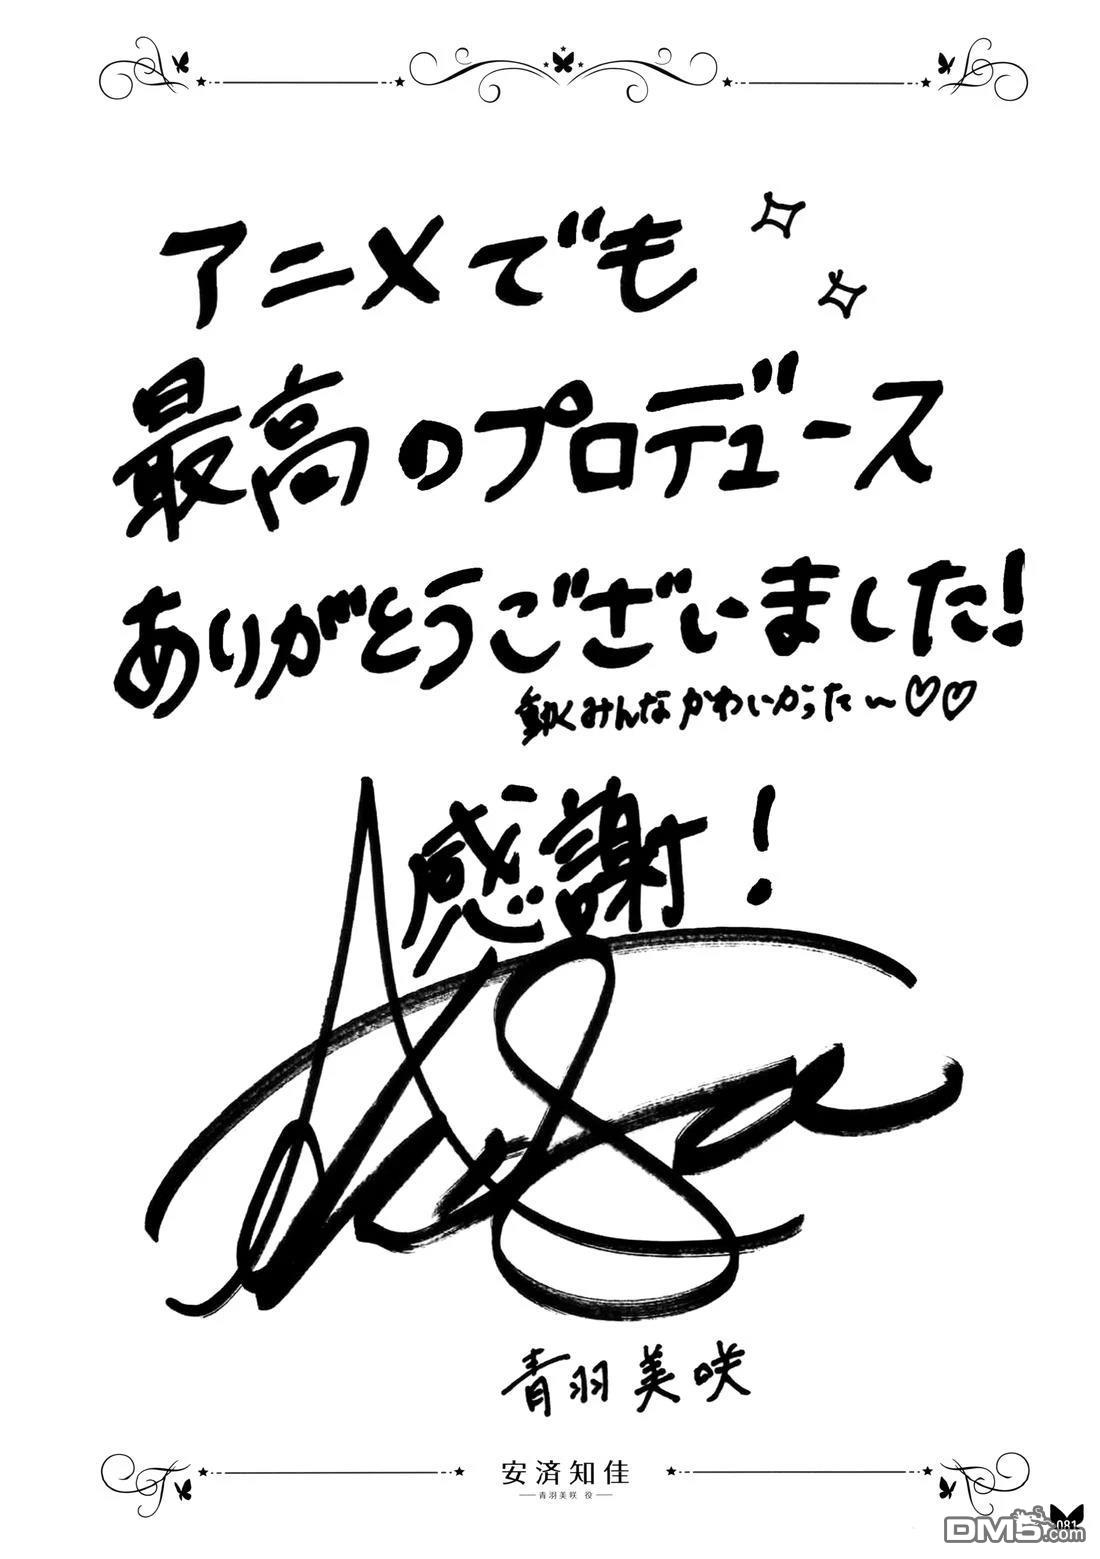 アニメでも
最高のプロデュース
ありがとうございました!
動くみんなかわいかった〜♡♡
感謝!
青羽美咲
安済知佳
青羽美咲 役
081
DM5.com